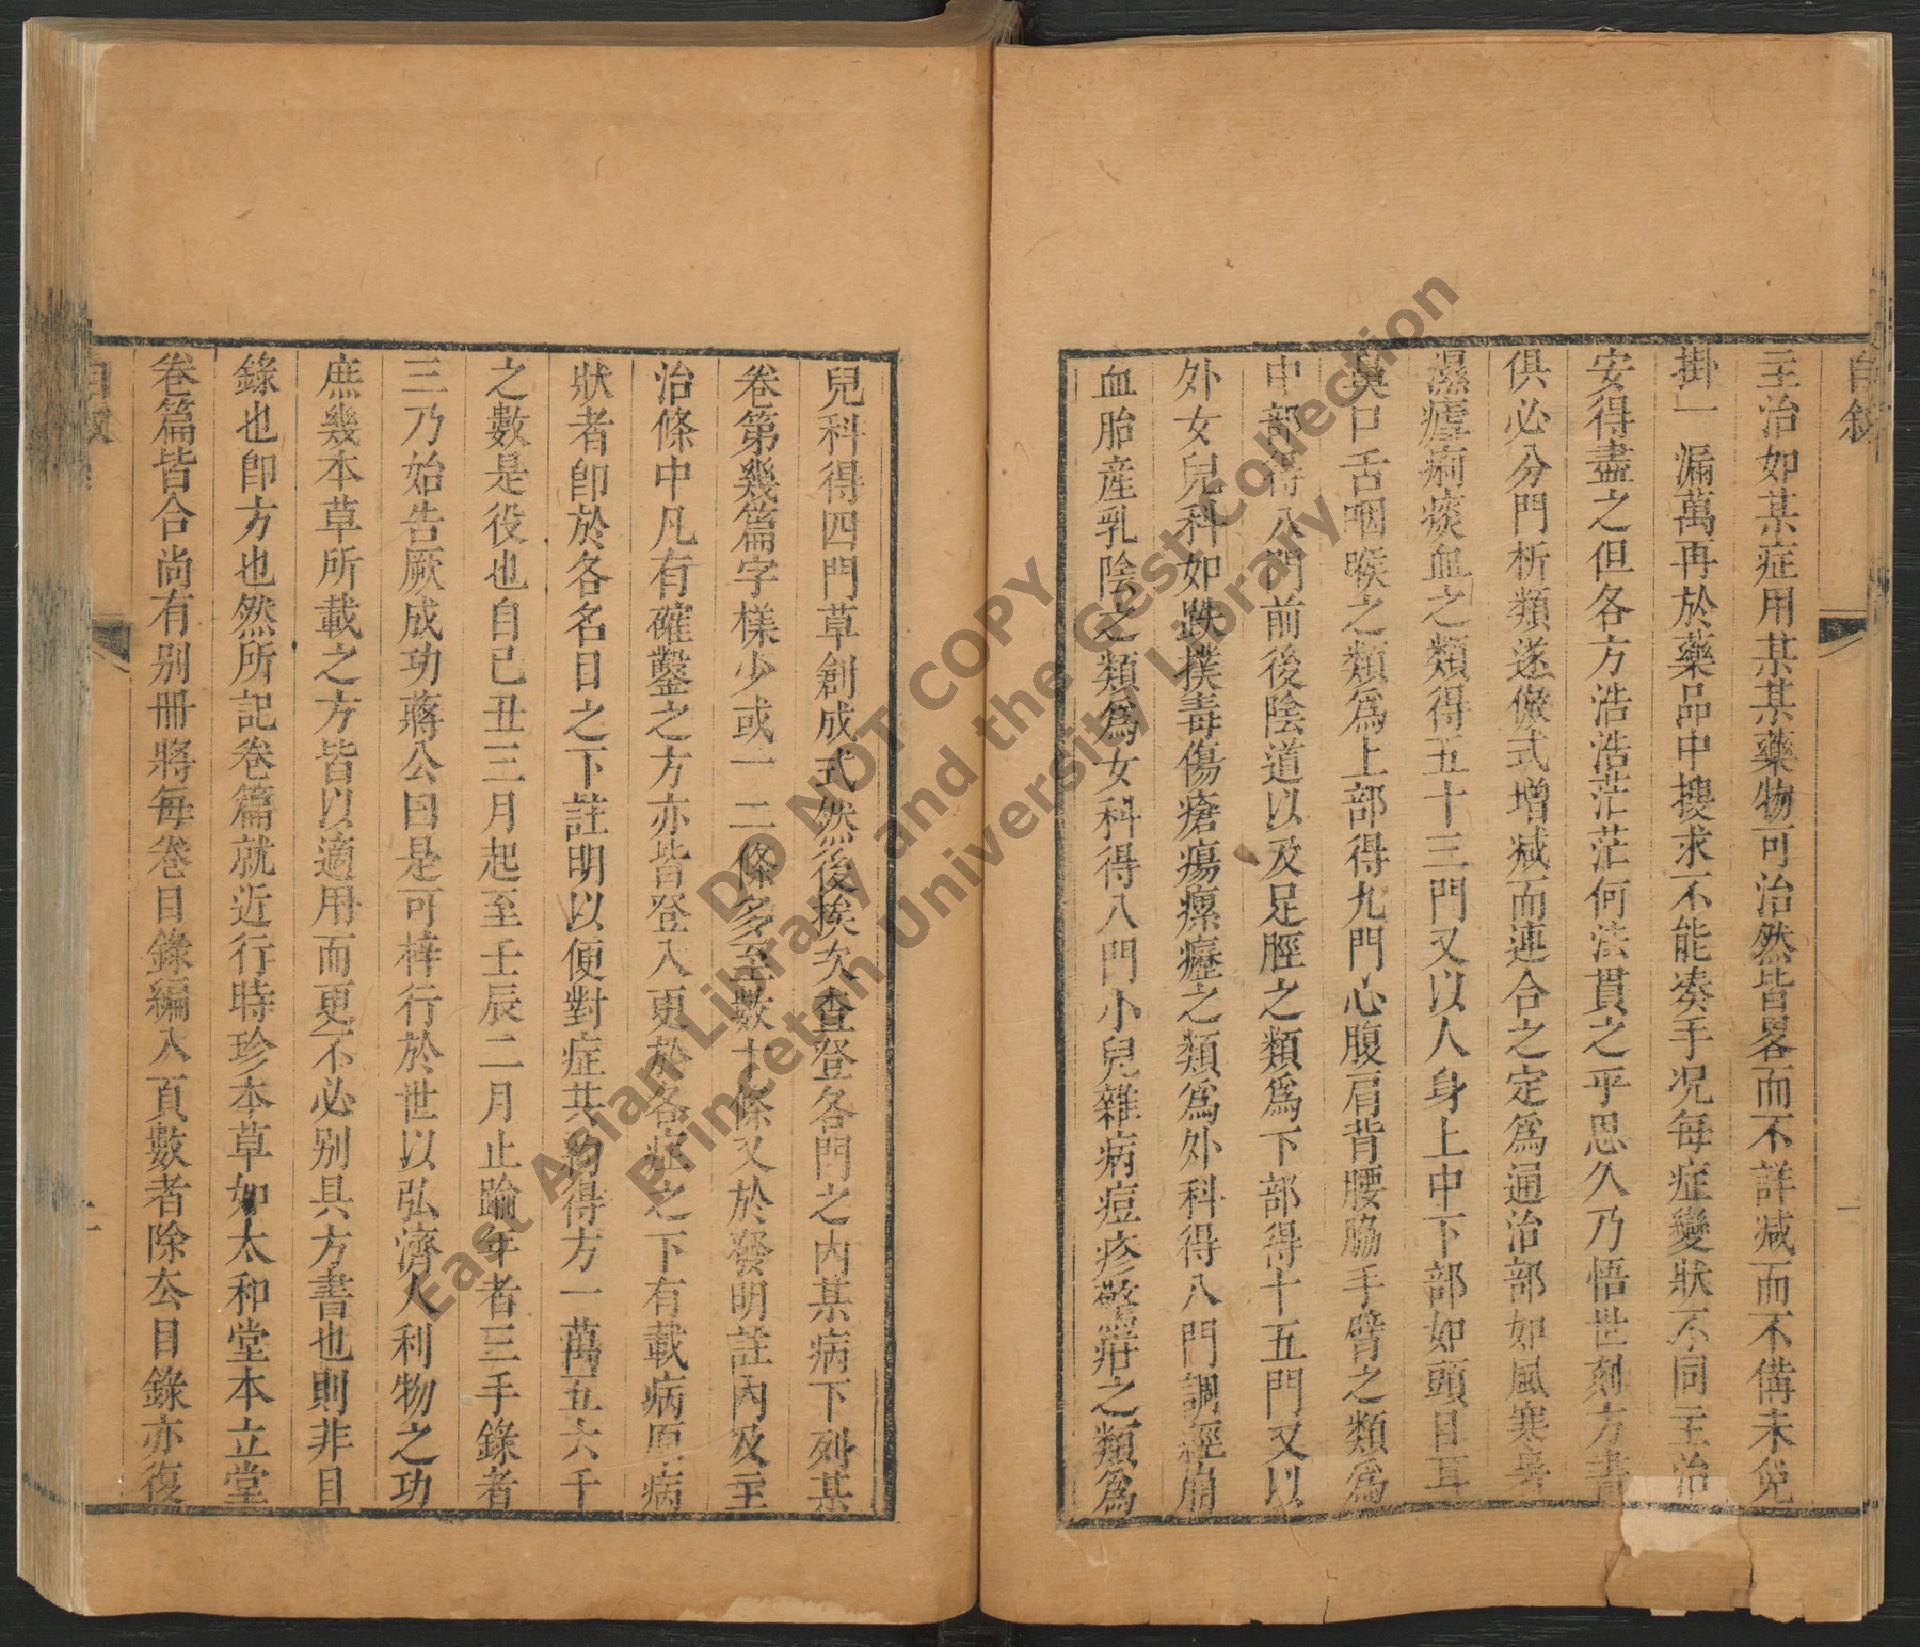 自敘
二
主治如某症用某某藥物可治然皆畧而不詳減而不備未免
掛一漏萬再於藥品中摟求不能凑手况每症變狀不同主治
安得盡之但各方浩浩茫茫何法貫之乎思久乃悟世刻方書
俱必分門析類遂倣式增減而連合之定爲通治部如風寒暑
濕瘧痢痰血之類得五十三門又以人身上中下部如頭目耳
鼻口舌咽喉之類爲上部得九門心腹肩背腰脇手臂之類爲
中部得八門前後陰道以及足脛之類爲下部得十五門又以
外女兒科如跌撲毒傷瘡瘍瘰癧之類爲外科得八門調經崩
血胎産乳陰之類爲女科得八門小兒雜病痘疹驚疳之類爲
兒科得四門草創成式然後挨次查登各門之內某病下列某
卷第幾篇字樣少或一二條多至數十條又於發明註內及主
治條中凡有確鑿之方亦皆登入更於各症之下有載病原病
狀者卽於各名目之下註明以便對症共約得方一萬五六千
之數是役也自己丑三月起至壬辰二月止踰年者三手錄者
三乃始告厥成功蔣公曰是可梓行於世以弘濟人利物之功
庶幾本草所載之方皆以適用而更不必别具方書也則非目
錄也卽方也然所記卷篇就近行時珍本草如太和堂本立堂
卷篇皆合尚有别冊將每卷目錄編入頁數者除厺目錄亦復
自敘
二
DO NOT COPY
East Asian Library and the Gest Collection
Princeton University Library